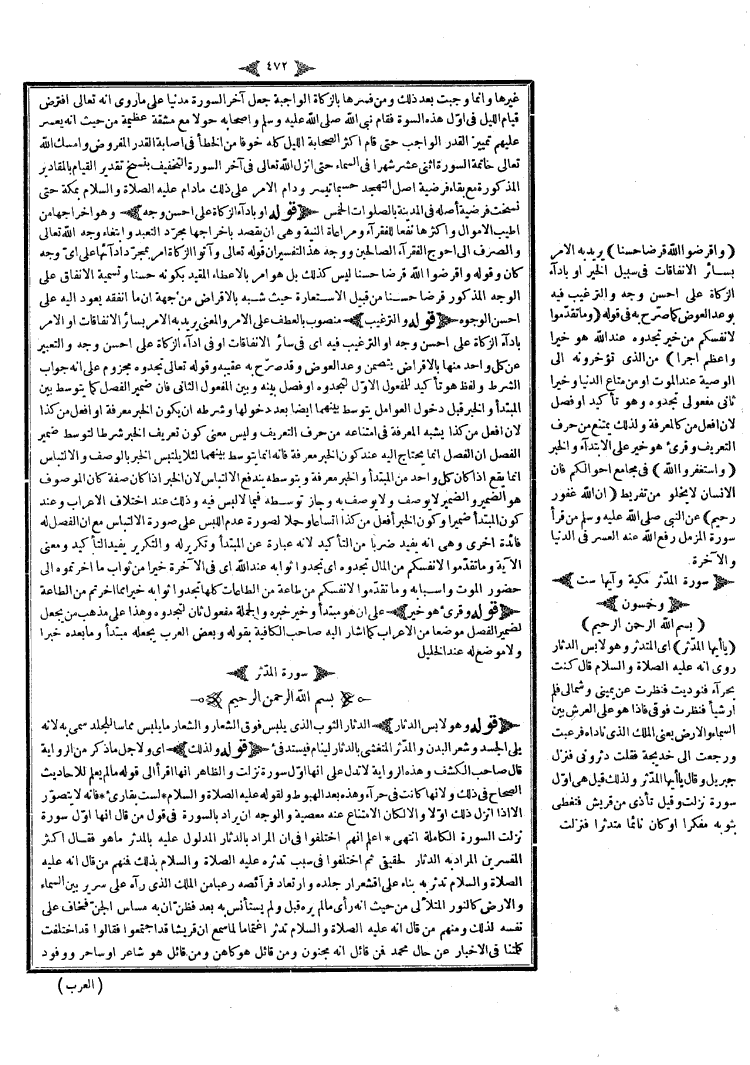 ﴿ ٤٧٢ ﴾
غيرها وانما وجبت بعد ذلك ومن فسرها بالزكاة الواجبة جعل آخر السورة مدنيا على ماروى انه تعالى افترض
قيام الليل فى اول هذه السوة فقام نبى الله صلى الله عليه وسلم واصحابه حولا مع مشقة عظيمة من حيث انه يعسر
عليهم تمييز القدر الواجب حتى قام اكثر الصحابة الليل كله خوفا من الخطأ فى اصابة القدر المفروض وامسك الله
تعالى خاتمة السورة اثنى عشر شهرا فى السماء حتى انزل الله تعالى فى آخر السورة التخفيف بنسخ تقدير القيام بالمقادير
المذكورة مع بقاء فرضية اصل التهجد حسبما تيسر ودام الامر على ذلك مادام عليه الصلاة والسلام بمكة حتى
نسخت فرضية أصله فى المدينة بالصلوات الخمس ﴿ قوله او بادآء الزكاة على احسن وجه ﴾ وهو اخراجها من
اطيب الاموال واكثرها نفعا للفقرآء ومراعاة النية وهى ان يقصد باخراجها مجرّد التعبد وابتغاء وجه الله تعالى
والصرف الى احوج الفقرآء الصالحين ووجه هذا التفسير ان قوله تعالى وآتوا الزكاة امر بمجرّد ادآئها على اىّ وجه
كان وقوله واقرضوا الله قرضا حسنا ليس كذلك بل هو امر بالاعطاء المقيد بكونه حسنا وتسمية الانفاق على
الوجه المذكور قرضا حسنا من قبيل الاستعارة حيث شبه بالاقراض من جهة ان ما انفقه يعود اليه على
احسن الوجوه ﴿ قوله والترغيب ﴾ منصوب بالعطف على الامر والمعنى يريد به الامر بسائر الانفاقات او الامر
بادآء الزكاة على احسن وجه او الترغيب فيه اى فى سائر الانفاقات او فى ادآء الزكاة على احسن وجه والتعبير
عن كل واحد منها بالاقراض يتضمن وعد العوض وقد صرّح به عقيبه وقوله تعالى تجدوه مجزوم على انه جواب
الشرط ولفظ هو تأكيد للمفعول الاوّل لتجدوه او فصل بينه وبين المفعول الثانى فان ضمير الفصل كما يتوسط بين
المبتدأ والخبر قبل دخول العوامل يتوسط بينهما ايضا بعد دخولها وشرطه ان يكون الخبر معرفة او افعل من كذا
لان افعل من كذا يشبه المعرفة فى امتناعه من حرف التعريف وليس معنى كون تعريف الخبر شرطا لتوسط ضمير
الفصل ان الفصل انما يحتاج اليه عند كون الخبر معرفة فانه انما يتوسط بينهما لئلا يلتبس الخبر بالوصف والالتباس
انما يقع اذا كان كل واحد من المبتدأ والخبر معرفة وبتوسطه يندفع الالتباس لان الخبر اذا كان صفة كان الموصوف
هو الضمير والضمير لا يوصف ولا يوصف به وجاز توسطه فيما لا لبس فيه وذلك عند اختلاف الاعراب وعند
كون المبتدأ ضميرا وكون الخبر أفعل من كذا اتساعا وحملا لصورة عدم اللبس على صورة الالتباس مع ان الفصل له
فائدة اخرى وهى انه يفيد ضربا من التأكيد لانه عبارة عن المبتدأ وتكرير له والتكرير يفيد التأكيد ومعنى
الآية وما تقدّموا لانفسكم من المال تجدوه اى تجدوا ثوابه عند الله اى فى الآخرة خيرا من ثواب ما اخرتموه الى
حضور الموت واسبابه وما تقدموا لانفسكم من طاعة من الطاعات كلها تجدوا ثوابه خيرا مما اخرتم من الطاعة
﴿ قوله وقرئ هو خير ﴾ على ان هو مبتدأ وخير خبره والجملة مفعول ثان لتجدوه وهذا على مذهب من يجعل
لضمير الفصل موضعا من الاعراب كما اشار اليه صاحب الكافية بقوله وبعض العرب يجعله مبتدأ وما بعده خبرا
ولا موضع له عند الخليل
﴿ سورة المدّثر ﴾
﴿ بسم الله الرحمن الرحيم ﴾
﴿ قوله وهو لابس الدثار ﴾ الدثار الثوب الذى يلبس فوق الشعار والشعار ما يلبس مماسا للجلد سمى به لانه
يلى الجسد وشعر البدن والمدّثر المتغشى بالدثار لينام فيستدفئ ﴿ قوله ولذلك ﴾ اى ولاجل ما ذكر من الرواية
قال صاحب الكشف وهذه الرواية لا تدل على انها اوّل سورة نزلت والظاهر انها اقرأ الى قوله ما لم يعلم للاحاديث
الصحاح فى ذلك ولانها كانت فى حرآء وهذه بعد الهبوط ولقوله عليه الصلاة والسلام * لست بقارئ * فانه لا يتصوّر
الا اذا انزل ذلك اولا والا لكان الامتناع عنه معصية والوجه ان يراد بالسورة فى قول من قال انها اوّل سورة
نزلت السورة الكاملة انتهى * اعلم انهم اختلفوا فى ان المراد بالدثار المدلول عليه بالمدثر ماهو فقال اكثر
المفسرين المراد به الدثار الحقيقى ثم اختلفوا فى سبب تدثره عليه الصلاة والسلام بذلك فمنهم من قال انه عليه
الصلاة والسلام تدثر به بناء على اقشعرار جلده وارتعاد فرآئصه رعبا من الملك الذى رآه على سرير بين السماء
والارض كالنور المتلألئ من حيث انه رأى ما لم يره قبل ولم يستأنس به بعد فظن ان به مساس الجنّ فخاف على
نفسه لذلك ومنهم من قال انه عليه الصلاة والسلام تدثر اغتماما لما سمع ان قريشا قد اجتمعوا فقالوا قد اختلفت
كلتنا فى الاخبار عن حال محمد فمن قائل انه مجنون ومن قائل هو كاهن ومن قائل هو شاعر او ساحر ووفود
( العرب )
( واقرضوا الله قرضا حسنا ) يريد به الامر
بسائر الانفاقات فى سبيل الخير او بادآء
الزكاة على احسن وجه والترغيب فيه
بوعد العوض كما صرّح به فى قوله ( وما تقدّموا
لانفسكم من خير تجدوه عند الله هو خيرا
واعظم اجرا ) من الذى تؤخرونه الى
الوصية عند الموت او من متاع الدنيا وخيرا
ثانى مفعولى تجدوه وهو تأكيد او فصل
لان افعل من كالمعرفة ولذلك يمتنع من حرف
التعريف وقرئ هو خير على الابتدآء والخبر
( واستغفروا الله ) فى مجامع احوالكم فان
الانسان لا يخلو من تفريط ( ان الله غفور
رحيم ) عن النبى صلى الله عليه وسلم من قرأ
سورة المزمل رفع الله عنه العسر فى الدنيا
والآخرة
﴿ سورة المدّثر مكية وآيها ست ﴾
﴿ وخمسون ﴾
( بسم الله الرحمن الرحيم )
( ياأيها المدّثر ) اى المتدثر وهو لابس الدثار
روى انه عليه الصلاة والسلام قال كنت
بحرآء فنوديت فنظرت عن يمينى وشمالى فلم
ار شيأ فنظرت فوقى فاذا هو على العرش بين
السماء والارض يعنى الملك الذى ناداه فرعبت
ورجعت الى خديجة فقلت دثرونى فنزل
جبريل وقال ياأيها المدّثر ولذلك قيل هى اوّل
سورة نزلت وقيل تأذى من قريش فتغطى
بثوبه مفكرا او كان نائما متدثرا فنزلت